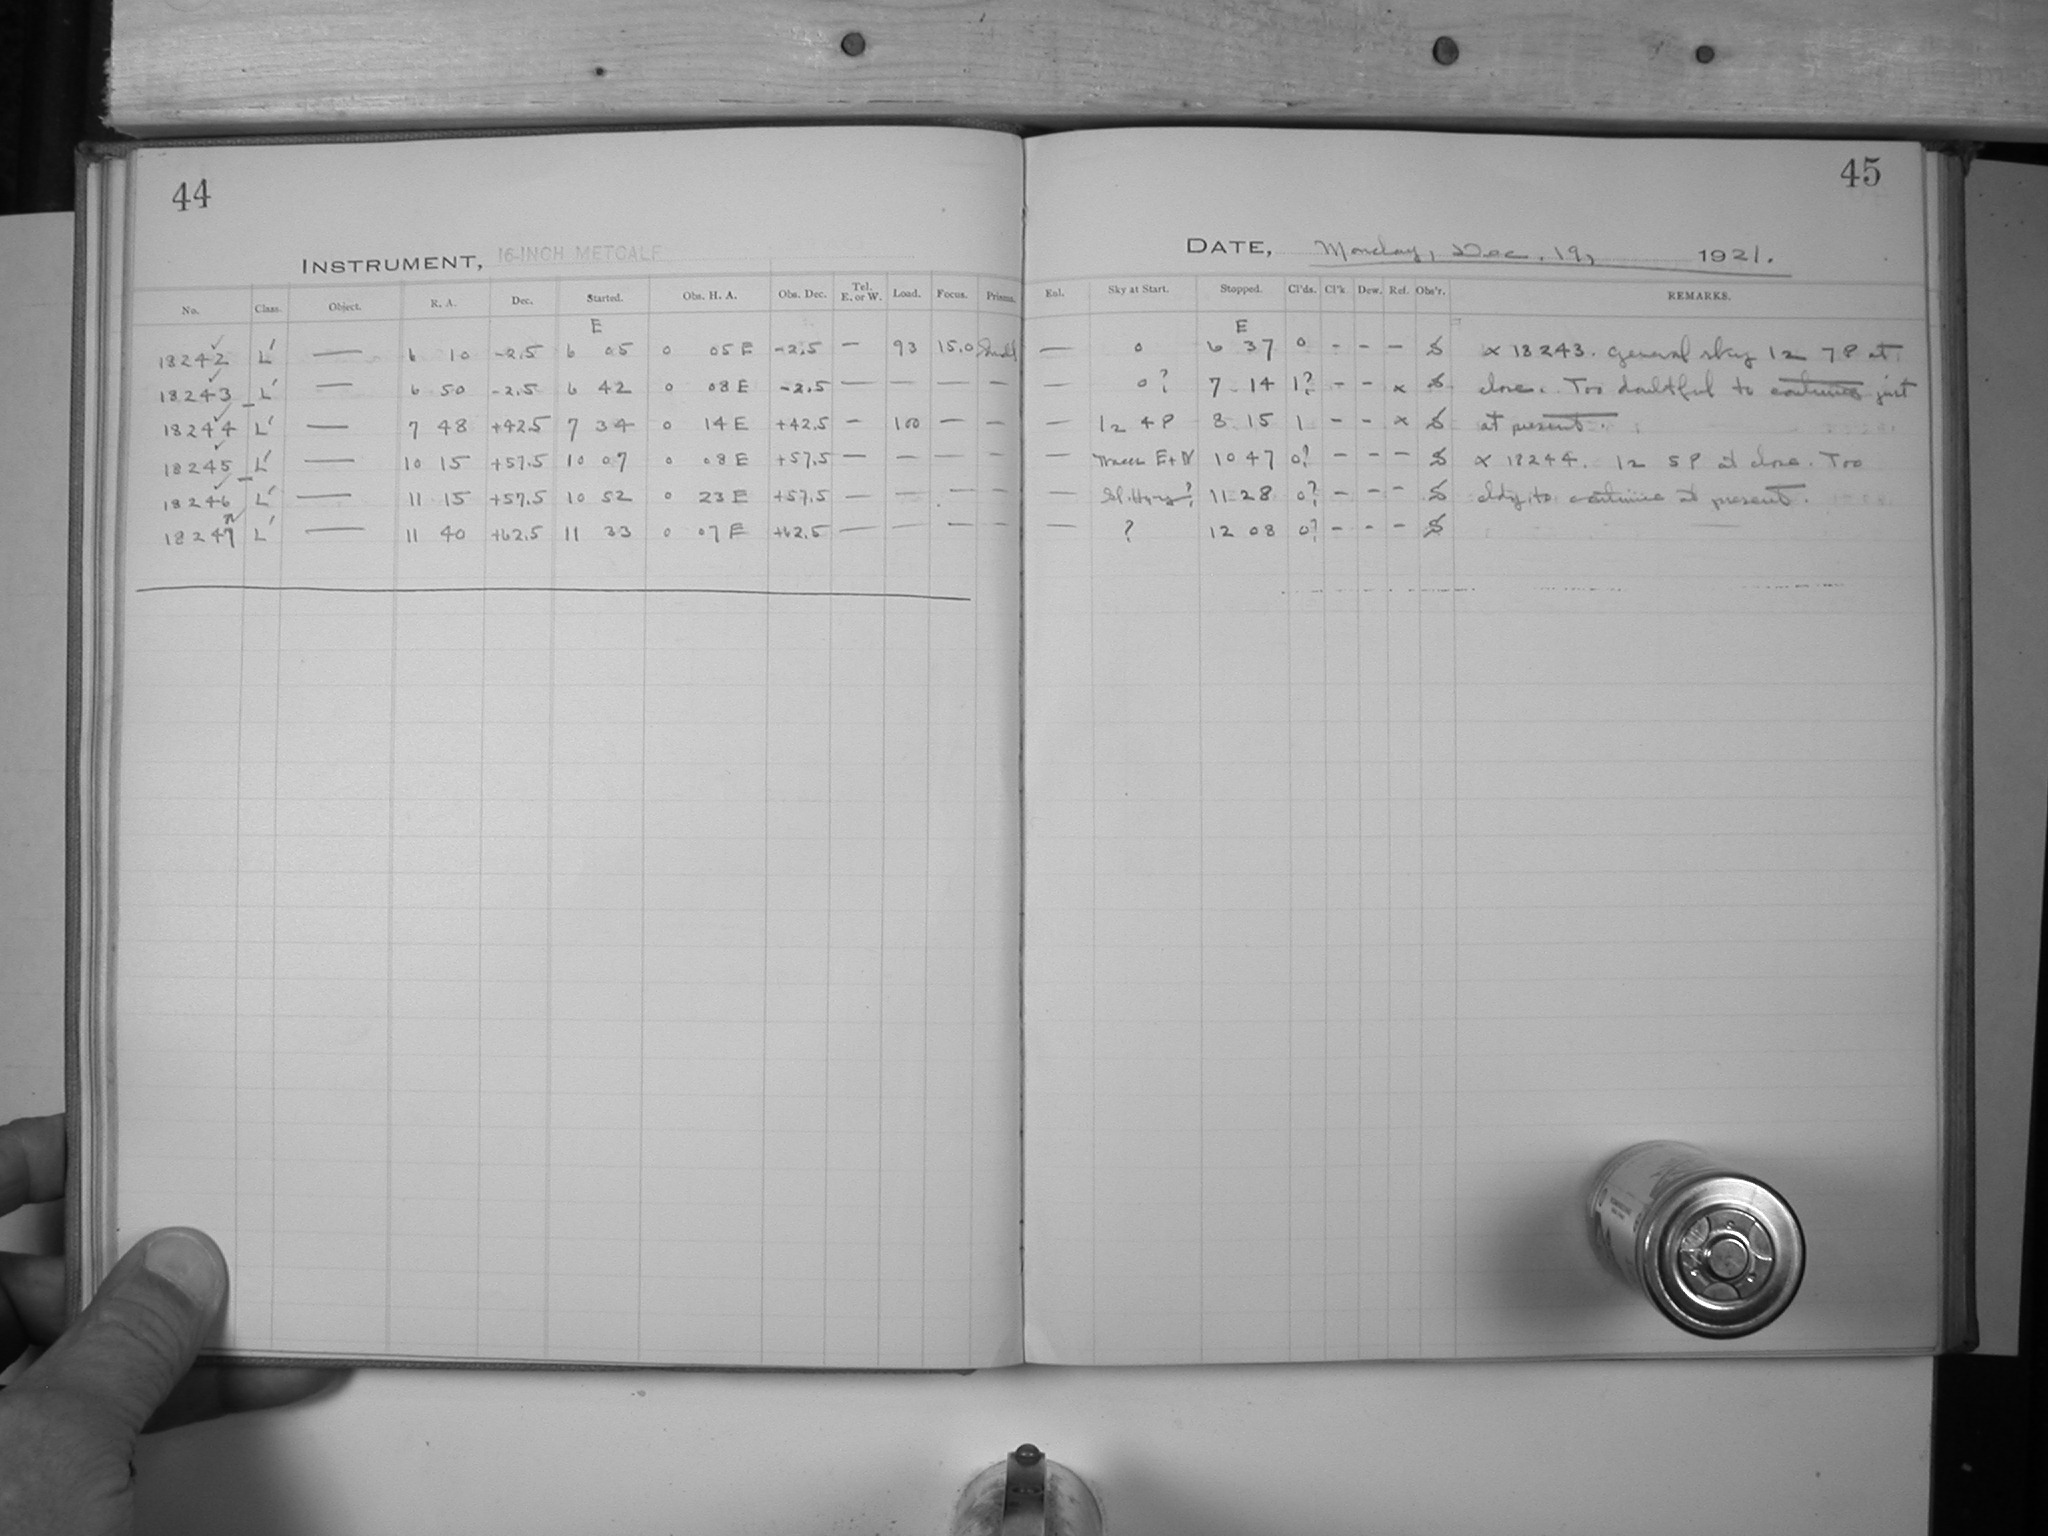 44
INSTRUMENT, 16-INCH METCALF
No. Class. Object. R. A. Dec. Started. Obs. H. A. Obs. Dec. Tel. E. or W. Load. Focus. Prisms.
E
18242 L' — 6 10 -2.5 6 05 0 05 E -2.5 — 93 15.0
18243 L' — 6 50 -2.5 6 42 0 08 E -2.5 — — — —
18244 L' — 7 48 +42.5 7 34 0 14 E +42.5 — 100 — —
18245 L' — 10 15 +57.5 10 07 0 08 E +57.5 — — — —
18246 L' — 11 15 +57.5 10 52 0 23 E +57.5 — — — —
18247 L' — 11 40 +62.5 11 33 0 07 E +62.5 — — — —
45
DATE, Monday, Dec. 19, 1921.
Enl. Sky at Start. Stopped. Cl'ds. Cl'k. Dew. Ref. Obs'r. REMARKS.
E
— 0 6 37 0 - - - S x 18243. General sky 12 7P at
— 0? 7 14 1? - - x S close. Too doubtful to continue just
— 12 4P 8 15 1 - - x S at present.
— Traces E+N 10 47 0? - - - S x 18244. 12 5P at close. Too
— Sl. Hazy? 11 28 0? - - - S cldy. to continue at present.
— ? 12 08 0? - - - S